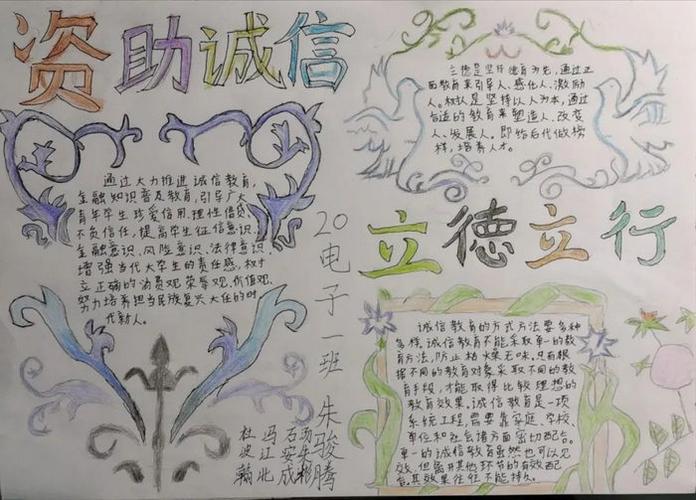 资助诚信
通过大力推进诚信教育,
金融知识普及教育,引导广大
青年学生珍爱信用.理性借贷.
不负信任,提高学生征信意识.
金融意识、风险意识、法律意识.
增强当代大学生的责任感,树
立正确的消费观.荣辱观.价值观.
努力培养担当民族复兴大任的时
代新人。
立德是坚持德育为先,通过正
面教育来引导人、感化人、激励
人。树人是坚持以人为本,通过
合适的教育来塑造人、改变
人、发展人。即给后代做榜
样,培养人才。
立德立行
诚信教育的方式方法要多种
多样,诚信教育不能采取单一的教
育方法,防止枯燥无味,只有根
据不同的教育对象采取不同的教
育手段,才能取得比较理想的
教育效果。诚信教育是一项
系统工程,需要靠家庭、学校、
单位和社会诸方面密切配合。
单一的诚信教育虽然也可以见
效,但离开其他环节的有效配
合,其效果往往不能持久。
20电子一班 朱骏腾
杜波翰
冯江北
石安成
汤朱彬